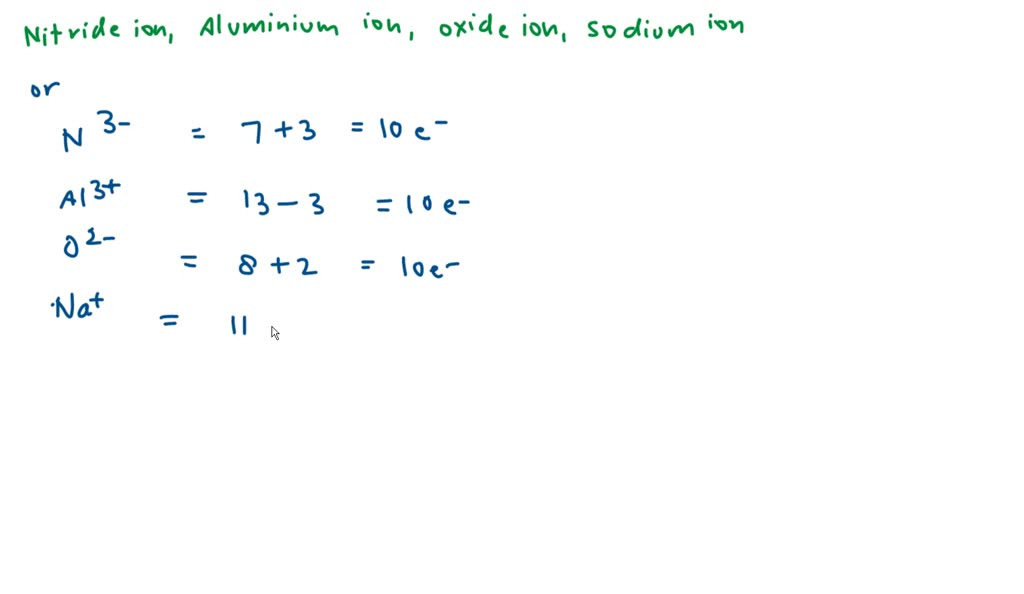 Nitride ion, Aluminium ion, oxide ion, sodium ion
or
N 3- = 7+3 = 10 e-
Al3+ = 13-3 = 10e-
O2- = 8+2 = 10e-
Na+ = 11